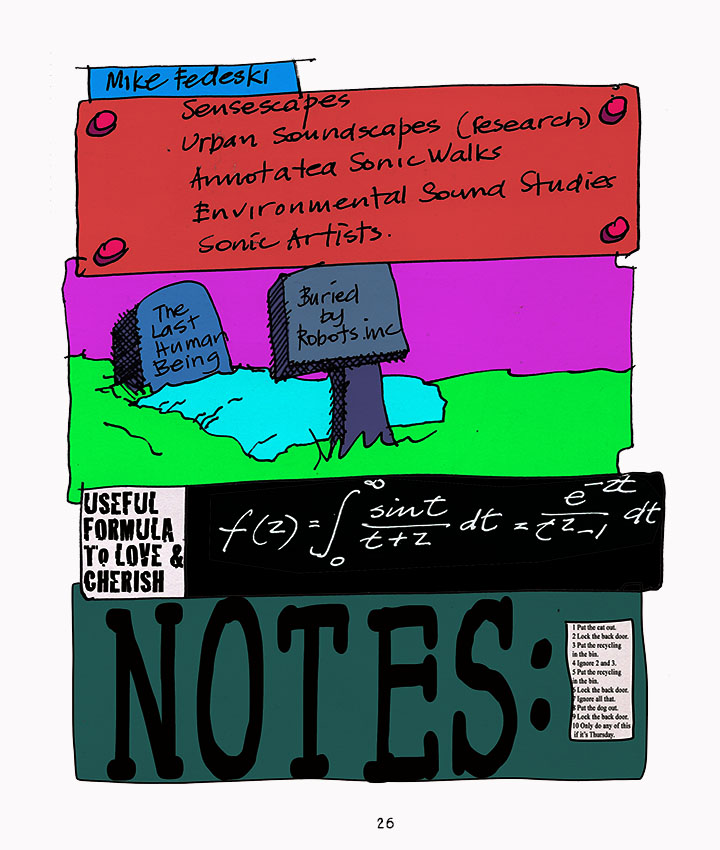 Mike Fedeski
Sensescapes
Urban Soundscapes (research)
Annotatea Sonic Walks
Environmental Sound Studies
Sonic Artists.
The
Last
Human
Being
Buried
by
Robots.inc
USEFUL
FORMULA
TO LOVE &
CHERISH
f(z) = ∫₀^∞ sint/(t+z) dt = e^-zt/(t^2-1) dt
NOTES:
1 Put the cat out.
2 Lock the back door.
3 Put the recycling
in the bin.
4 Ignore 2 and 3.
5 Put the recycling
in the bin.
6 Lock the back door.
7 Ignore all that.
8 Put the dog out.
9 Lock the back door.
10 Only do any of this
if it's Thursday.
26